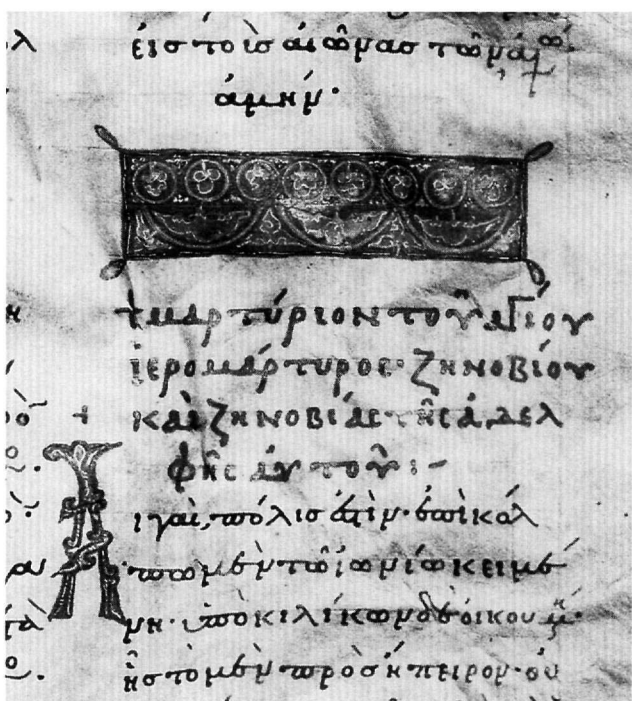 εἰς τοὺς αἰῶνας τῶν αἰώ
ἀμήν·
+ μαρτύριον τοῦ ἁγίου
ἱερομάρτυρος ζηνοβίου
καὶ ζηνοβίας τῆς ἀδελ
φῆς αὐτοῦ :–
Αἰγαὶ, πόλις ἐστὶν· ἐπὶ κόλ
πω μὲν τῶ ἰωνίω κειμέ
νη· ὑπὸ κιλίκων δὲ οἰκουμ
ἧς τὸ μὲν πρὸς ἤπειρον· οὐ